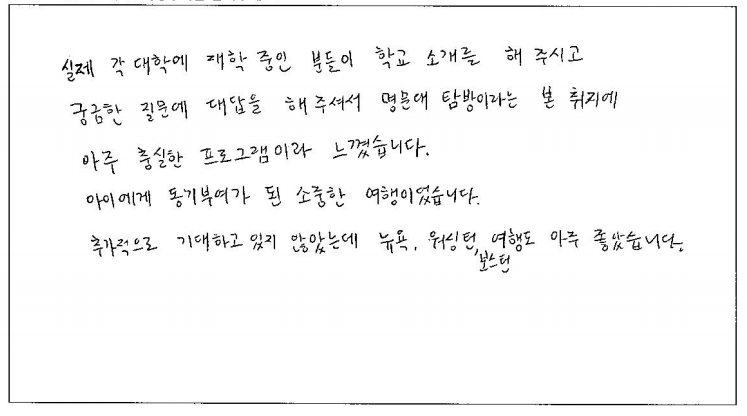 실제 각 대학에 재학 중인 분들이 학교 소개를 해 주시고
궁금한 질문에 대답을 해주셔서 명문대 탐방이라는 본 취지에
아주 충실한 프로그램이라 느꼈습니다.
아이에게 동기부여가 된 소중한 여행이었습니다.
추가적으로 기대하고 있지 않았는데 뉴욕, 워싱턴, 보스턴 여행도 아주 좋았습니다.